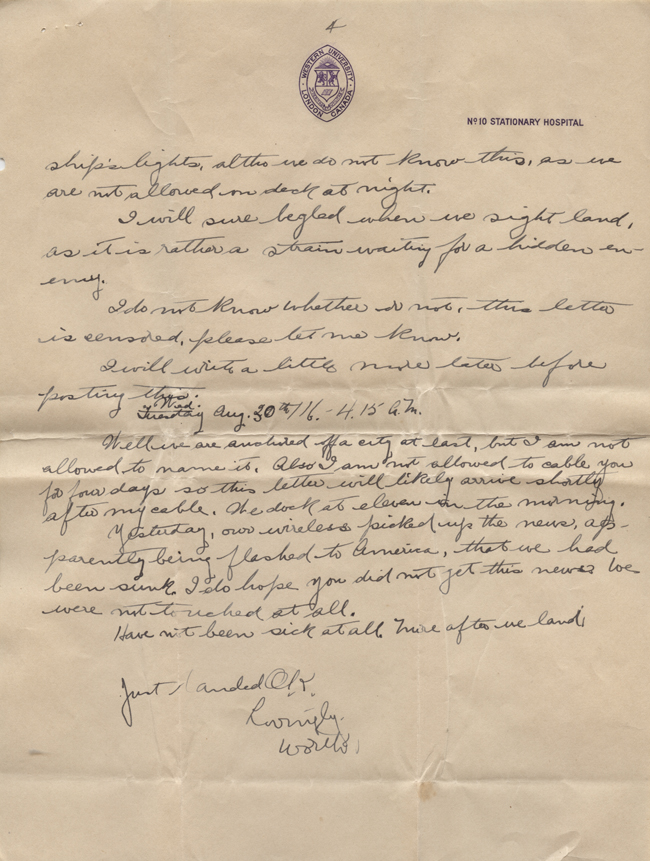 4
WESTERN UNIVERSITY
LONDON CANADA
Nº10 STATIONARY HOSPITAL
ship's lights, altho we do not know this, as we
are not allowed on deck at night.
I will sure be glad when we sight land,
as it is rather a strain waiting for a hidden en-
emy.
I do not know whether or not, this letter
is censored, please let me know.
I will write a little more later before
posting this.
Wed.
Tuesday Aug. 30th/16. - 4.15 A.M.
Well we are anchored off a city at last, but I am not
allowed to name it. Also I am not allowed to cable you
for four days so this letter will likely arrive shortly
after my cable. We dock at eleven in the morning.
Yesterday, our wireless picked up the news, ap-
parently being flashed to America, that we had
been sunk. I do hope you did not get this news. We
were not touched at all.
Have n't been sick at all. More after we land.
Just landed O.K.
Lovingly.